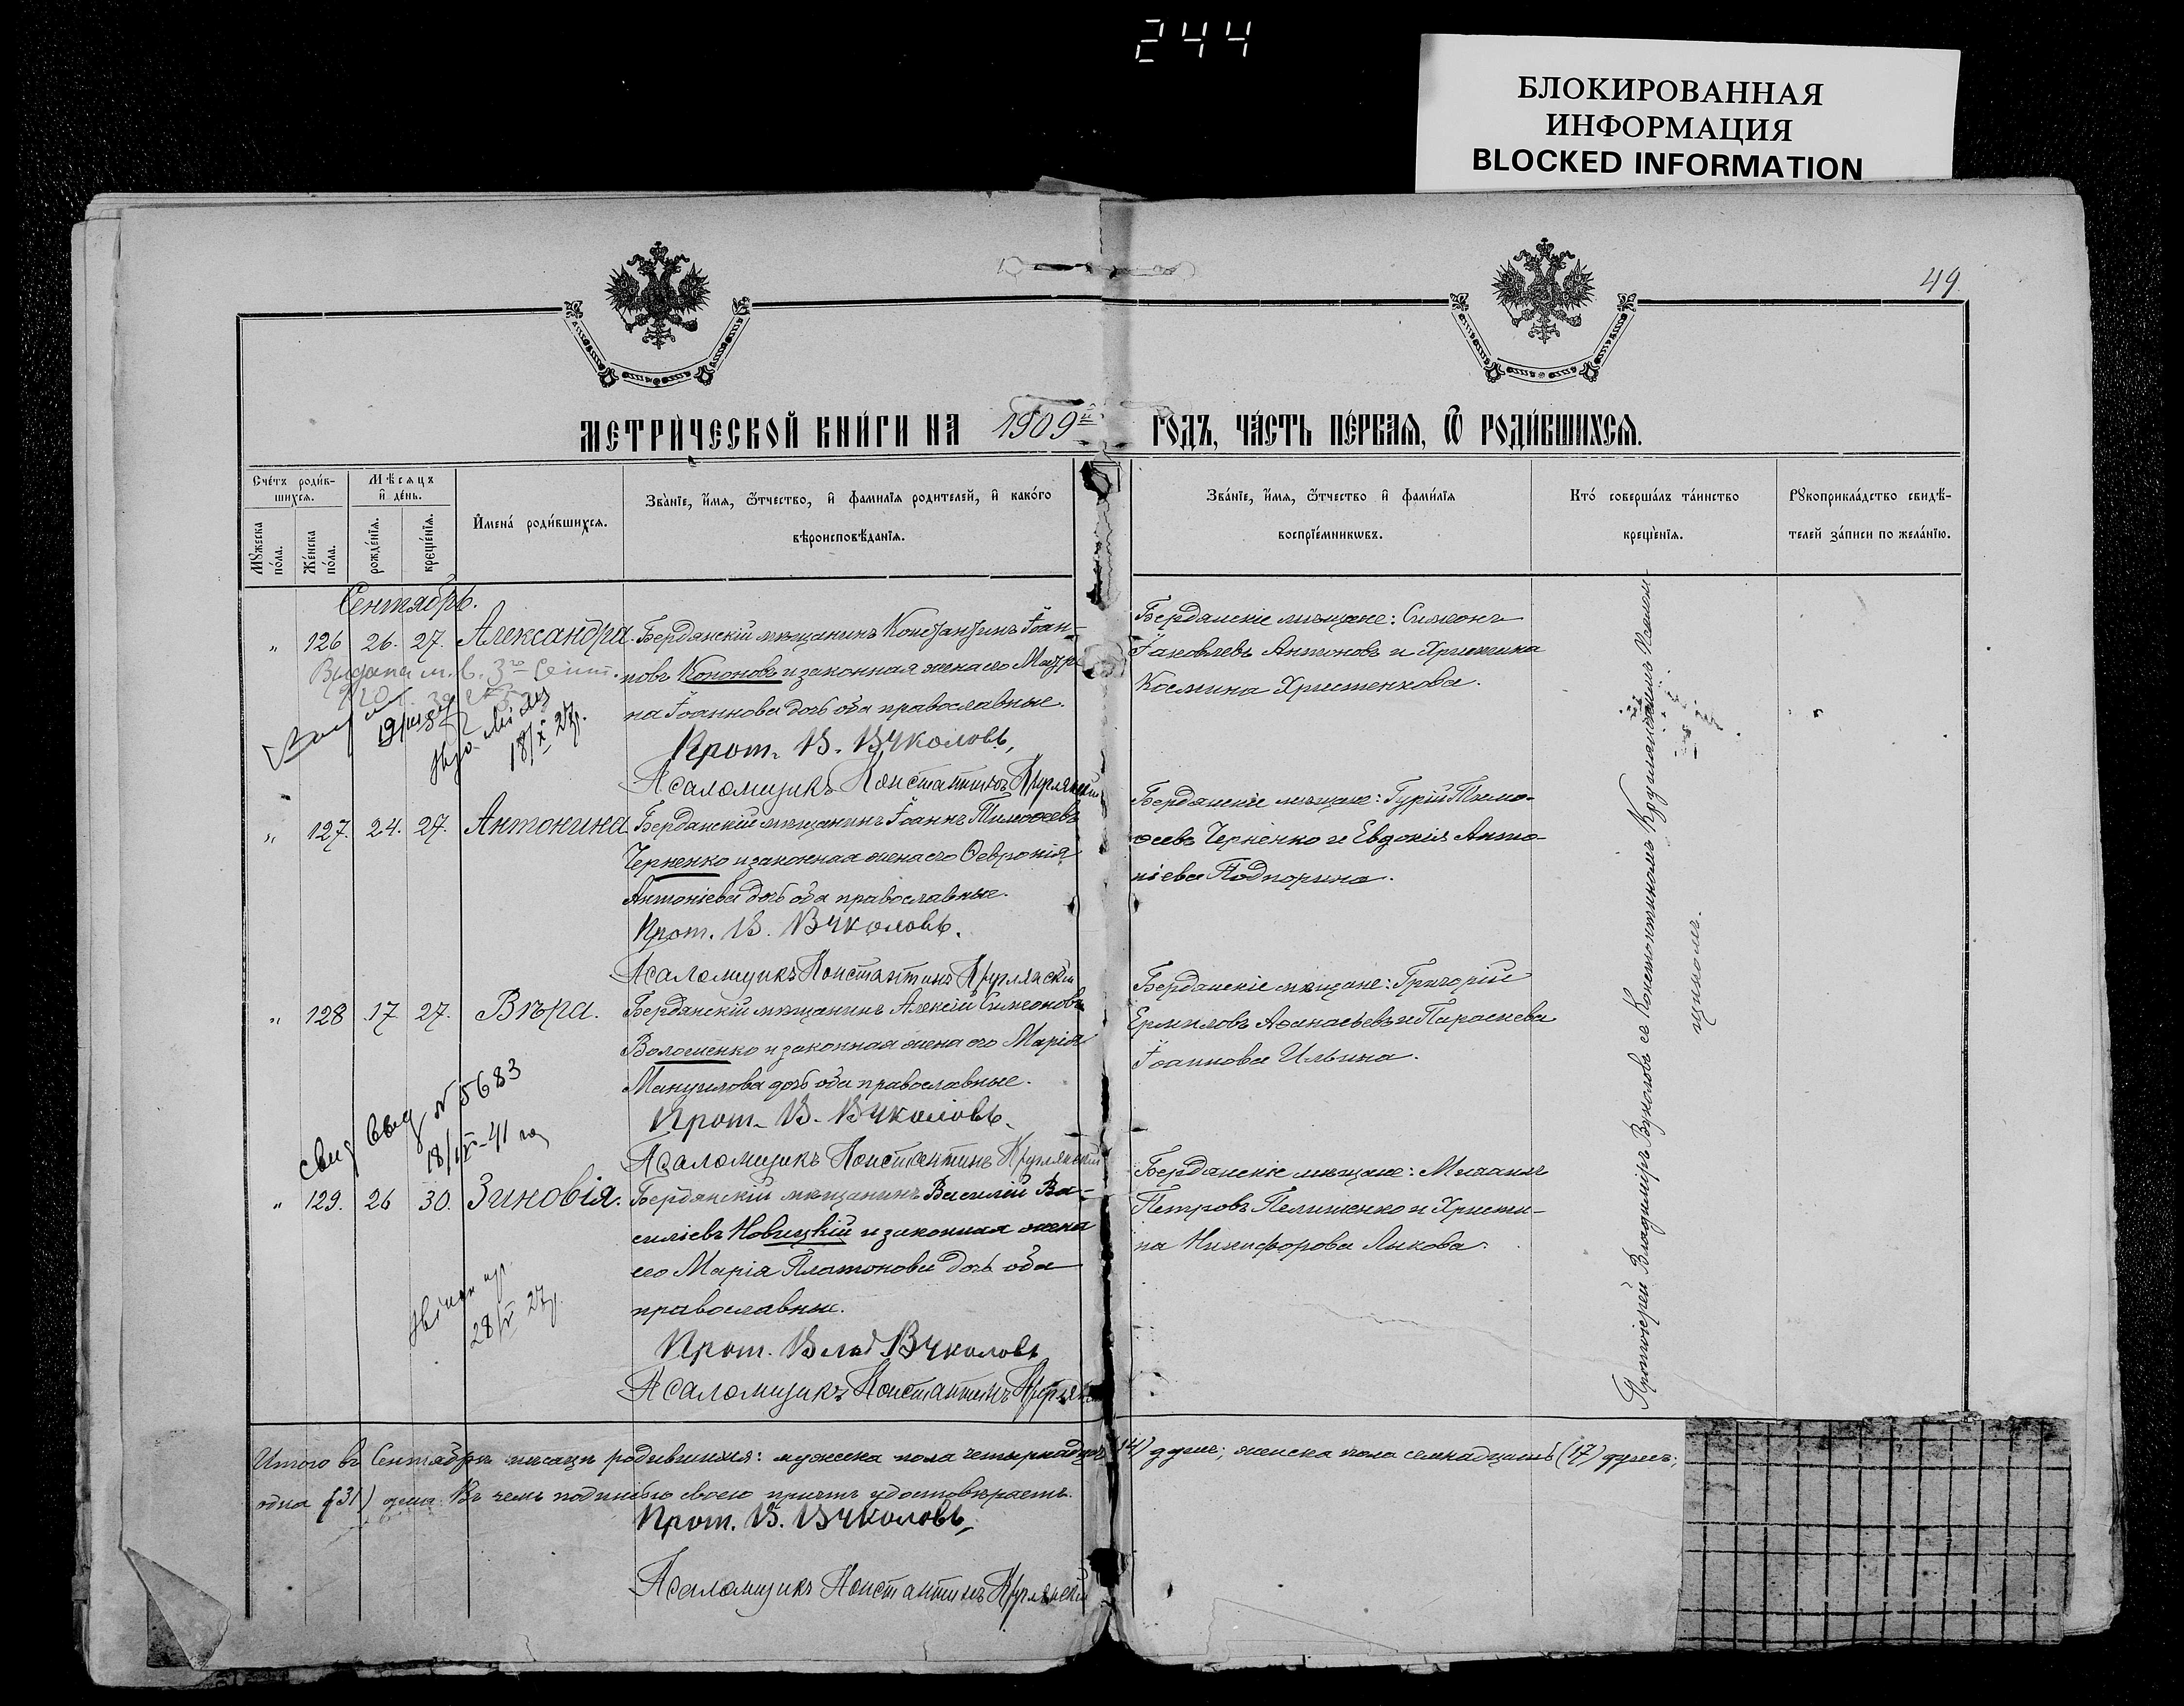 244
БЛОКИРОВАННАЯ
ИНФОРМАЦИЯ
BLOCKED INFORMATION
49
МЕТРИ́ЧЕСКОЙ КНИ́ГИ НА 1909й ГОДЪ, ЧА́СТЬ ПЕ́РВАѦ, Ѿ РОДИ́ВШИХСѦ.
Сче́тъ роди́в-
шихсѧ.
Мѣсѧцъ
и҆ де́нь.
Мꙋ́жеска
по́ла.
Же́нска
по́ла.
рожде́нїѧ.
креще́нїѧ.
И҆мена̀ роди́вшихсѧ.
Зва́нїе, и҆́мѧ, ѻ҆́тчество, и҆ фами́лїѧ роди́телей, и҆ како́го
вѣроисповѣ́данїѧ.
Зва́нїе, и҆́мѧ, ѻ҆́тчество и҆ фами́лїѧ
воспрїе́мникѡвъ.
Кто̀ соверша́лъ та́инство
креще́нїѧ.
Рꙋкоприкла́дство свидѣ́-
телей за́писи по жела́нїю.
Сентябрь.
" 126 26. 27. Александра. Бердянскій мѣщанинъ Константинъ Іоан-
новъ Кононовъ и законная жена его Матро-
на Іоаннова дочь оба православные.
Прот. В. Вуколовъ,
Псаломщикъ Константинъ Круглянскій
Бердянскіе мѣщане: Симеонъ
Іаковлевъ Антоновъ и Христина
Космина Христенкова.
Выдана м. в. 3го Сент.
18/X 27г.
" 127. 24. 27. Антонина. Бердянскій мѣщанинъ Іоаннъ Тимоѳеевъ
Черненко и законная жена его Ѳевронія
Антоніева дочь оба православные.
Прот. В. Вуколовъ.
Псаломщикъ Константинъ Круглянскій
Бердянскіе мѣщане: Гурій Тимо-
ѳеевъ Черненко и Евдокія Анто-
ніева Подпорина.
" 128 17 27. Вѣра. Бердянскій мѣщанинъ Алексій Симеоновъ
Волошенко и законная жена его Марія
Мануилова дочь оба православные.
Прот. В. Вуколовъ.
Псаломщикъ Константинъ Круглянскій
Бердянскіе мѣщане: Григорій
Ермиловъ Аѳанасьевъ и Параскева
Іоаннова Ильина.
свид выд № 5683
18/IX-41 год
" 129. 26 30. Зиновія. Бердянскій мѣщанинъ Василій Ва-
силіевъ Новицкій и законная жена
его Марія Платонова дочь оба
православные.
Прот. Влад Вуколовъ
Псаломщикъ Константинъ Круглянскій
Бердянскіе мѣщане: Михаилъ
Петровъ Пелипенко и Христи-
на Никифорова Лыкова.
28/IV 27г.
Протоіерей Владиміръ Вуколовъ съ Константиномъ Круглянскимъ Псалом-
щикомъ.
Итого въ Сентябрѣ мѣсяцѣ родившихся: мужеска пола четырнадцать (14) душъ; женска пола семнадцать (17) душъ;
одна (31) душа. Въ чемъ подписью своею причтъ удостовѣряетъ.
Прот. В. Вуколовъ,
Псаломщикъ Константинъ Круглянскій